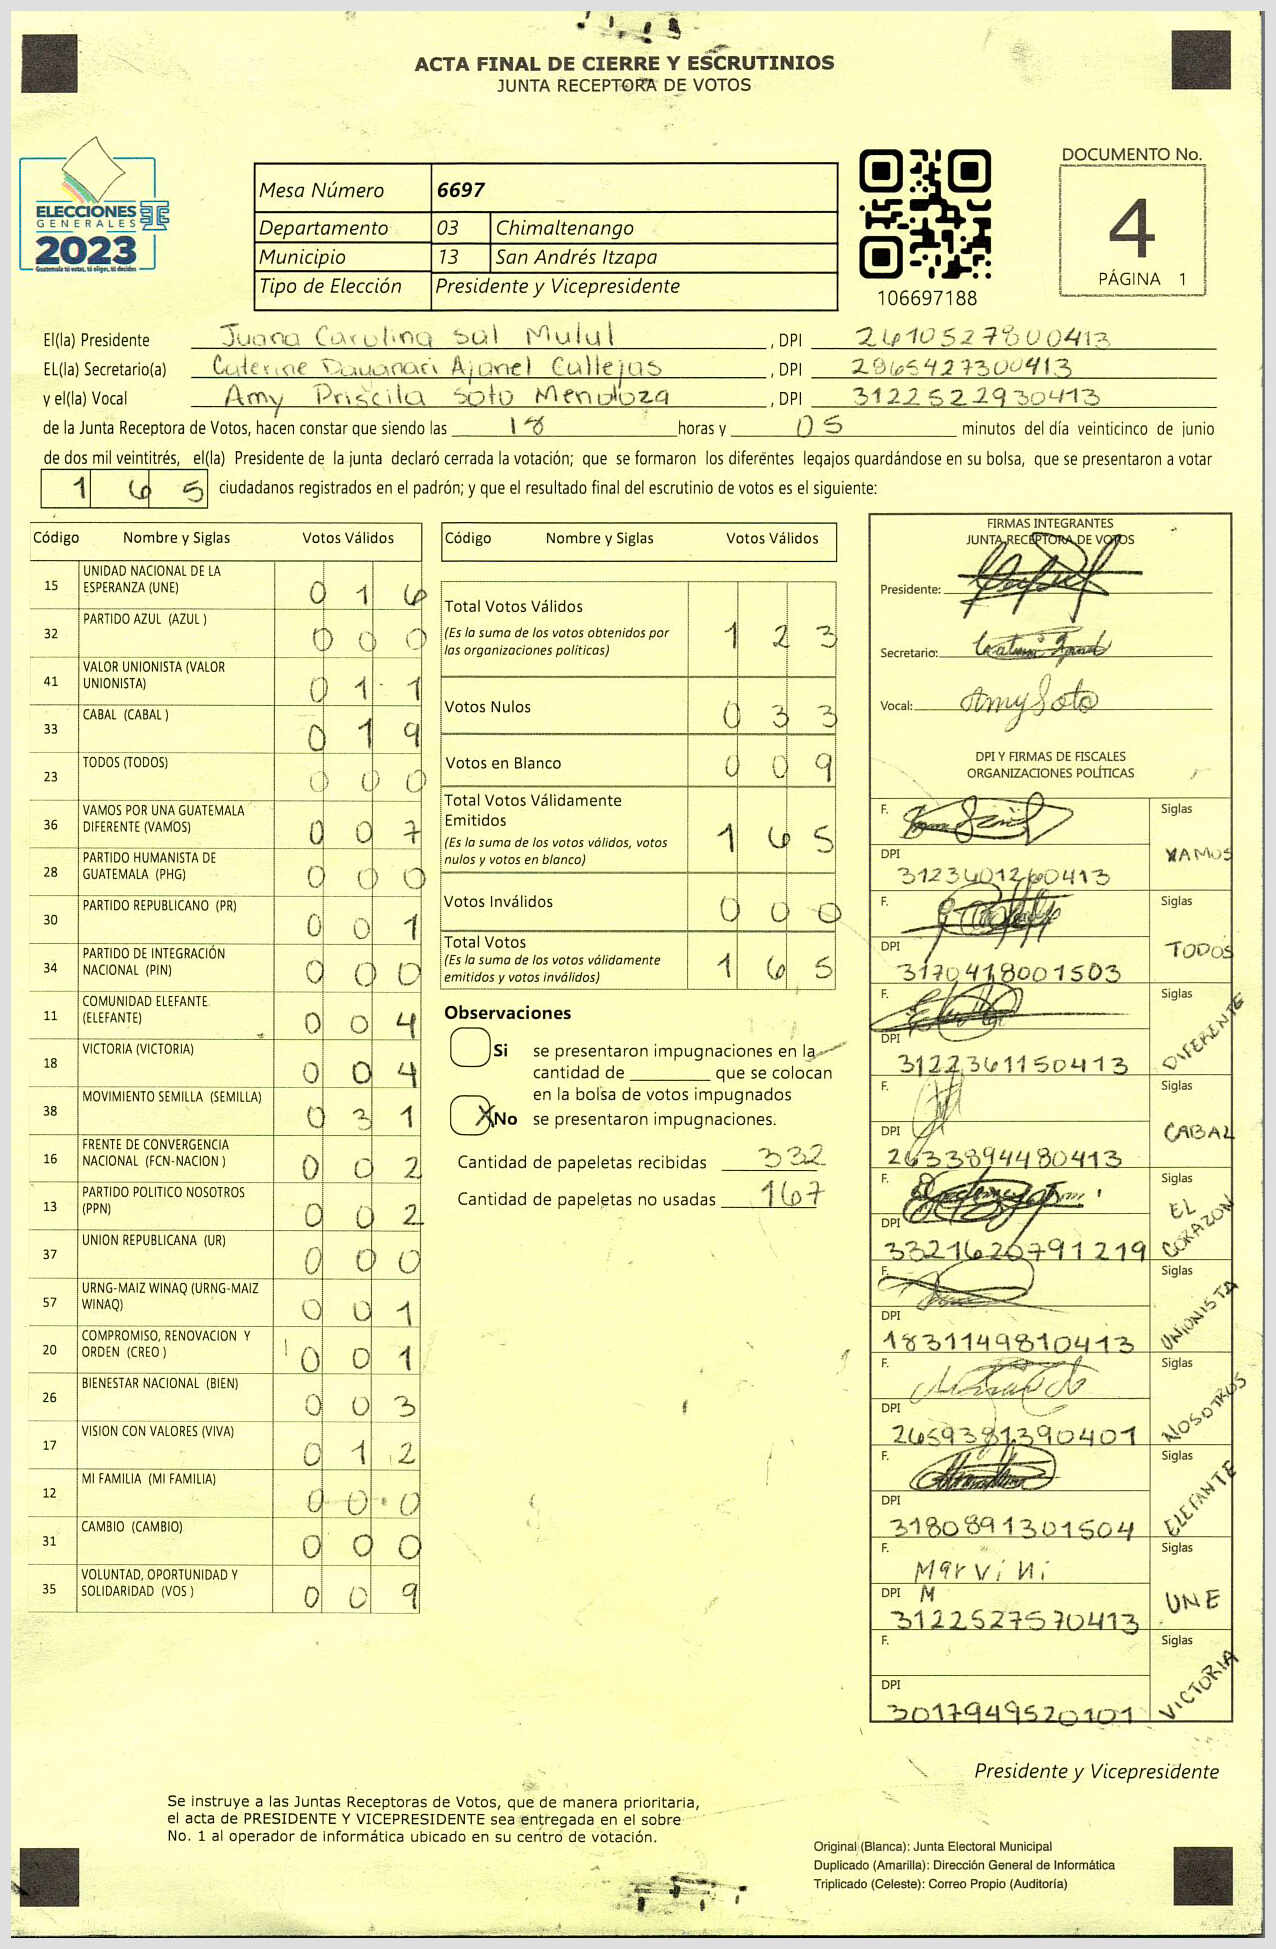 ACTA FINAL DE CIERRE Y ESCRUTINIOS
JUNTA RECEPTORA DE VOTOS
ELECCIONES
GENERALES
2023
Guatemala tú votas, tú eliges, tú decides
Mesa Número 6697
Departamento 03 Chimaltenango
Municipio 13 San Andrés Itzapa
Tipo de Elección Presidente y Vicepresidente
106697188
DOCUMENTO No.
4
PÁGINA 1
El(la) Presidente Juana Carolina Sal Mulul, DPI 2610527800413
EL(la) Secretario(a) Caterine Dayanari Ajanel Callejas, DPI 2965427300413
y el(la) Vocal Amy Priscila Soto Mendoza, DPI 3122522930413
de la Junta Receptora de Votos, hacen constar que siendo las 18 horas y 05 minutos del día veinticinco de junio
de dos mil veintitrés, el(la) Presidente de la junta declaró cerrada la votación; que se formaron los diferentes legajos guardándose en su bolsa, que se presentaron a votar
165 ciudadanos registrados en el padrón; y que el resultado final del escrutinio de votos es el siguiente:
Código Nombre y Siglas Votos Válidos
15 UNIDAD NACIONAL DE LA ESPERANZA (UNE) 016
32 PARTIDO AZUL (AZUL ) 000
41 VALOR UNIONISTA (VALOR UNIONISTA) 011
33 CABAL (CABAL ) 019
23 TODOS (TODOS) 000
36 VAMOS POR UNA GUATEMALA DIFERENTE (VAMOS) 007
28 PARTIDO HUMANISTA DE GUATEMALA (PHG) 000
30 PARTIDO REPUBLICANO (PR) 001
34 PARTIDO DE INTEGRACIÓN NACIONAL (PIN) 000
11 COMUNIDAD ELEFANTE (ELEFANTE) 004
18 VICTORIA (VICTORIA) 004
38 MOVIMIENTO SEMILLA (SEMILLA) 031
16 FRENTE DE CONVERGENCIA NACIONAL (FCN-NACION ) 002
13 PARTIDO POLITICO NOSOTROS (PPN) 002
37 UNION REPUBLICANA (UR) 000
57 URNG-MAIZ WINAQ (URNG-MAIZ WINAQ) 001
20 COMPROMISO, RENOVACION Y ORDEN (CREO ) 001
26 BIENESTAR NACIONAL (BIEN) 003
17 VISION CON VALORES (VIVA) 012
12 MI FAMILIA (MI FAMILIA) 000
31 CAMBIO (CAMBIO) 000
35 VOLUNTAD, OPORTUNIDAD Y SOLIDARIDAD (VOS ) 009
Código Nombre y Siglas Votos Válidos
Total Votos Válidos 123
(Es la suma de los votos obtenidos por
las organizaciones politicas)
Votos Nulos 033
Votos en Blanco 009
Total Votos Válidamente
Emitidos 165
(Es la suma de los votos válidos, votos
nulos y votos en blanco)
Votos Inválidos 000
Total Votos 165
(Es la suma de los votos válidamente
emitidos y votos inválidos)
Observaciones
Si se presentaron impugnaciones en la
cantidad de ________ que se colocan
en la bolsa de votos impugnados
X No se presentaron impugnaciones.
Cantidad de papeletas recibidas 332
Cantidad de papeletas no usadas 167
FIRMAS INTEGRANTES
JUNTA RECEPTORA DE VOTOS
Presidente:
Secretario:
Vocal: Amy Soto
DPI Y FIRMAS DE FISCALES
ORGANIZACIONES POLÍTICAS
F. Siglas
DPI 3123401260413 VAMOS
F. Siglas
DPI 3170418001503 TODOS
F. Siglas
DPI 3122361150413 DIFERENTE
F. Siglas
DPI 2633894480413 CABAL
F. Siglas
DPI 3321620791219 EL CORAZON
F. Siglas
DPI 1831149810413 UNIONISTA
F. Siglas
DPI 2659381390401 NOSOTROS
F. Siglas
DPI 3180891301504 ELEFANTE
F. Marvini M Siglas
DPI 3122527570413 UNE
F. Siglas
DPI 3017949520101 VICTORIA
Presidente y Vicepresidente
Se instruye a las Juntas Receptoras de Votos, que de manera prioritaria,
el acta de PRESIDENTE Y VICEPRESIDENTE sea entregada en el sobre
No. 1 al operador de informática ubicado en su centro de votación.
Original (Blanca): Junta Electoral Municipal
Duplicado (Amarilla): Dirección General de Informática
Triplicado (Celeste): Correo Propio (Auditoría)